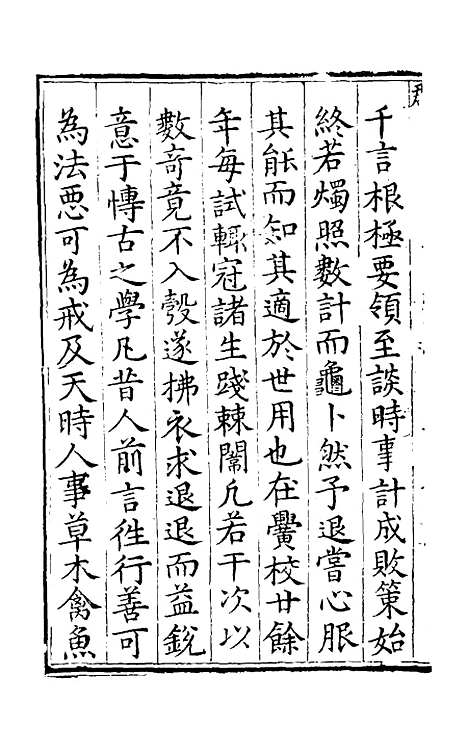 千言根極要領至談時事計成敗策始
終若燭照數計而龜卜然予退嘗心服
其能而知其適於世用也在黌校廿餘
年每試輒冠諸生踐棘闈凡若干次以
數奇竟不入彀遂拂衣求退退而益銳
意于慱古之學凡昔人前言徃行善可
為法惡可為戒及天時人事草木禽魚